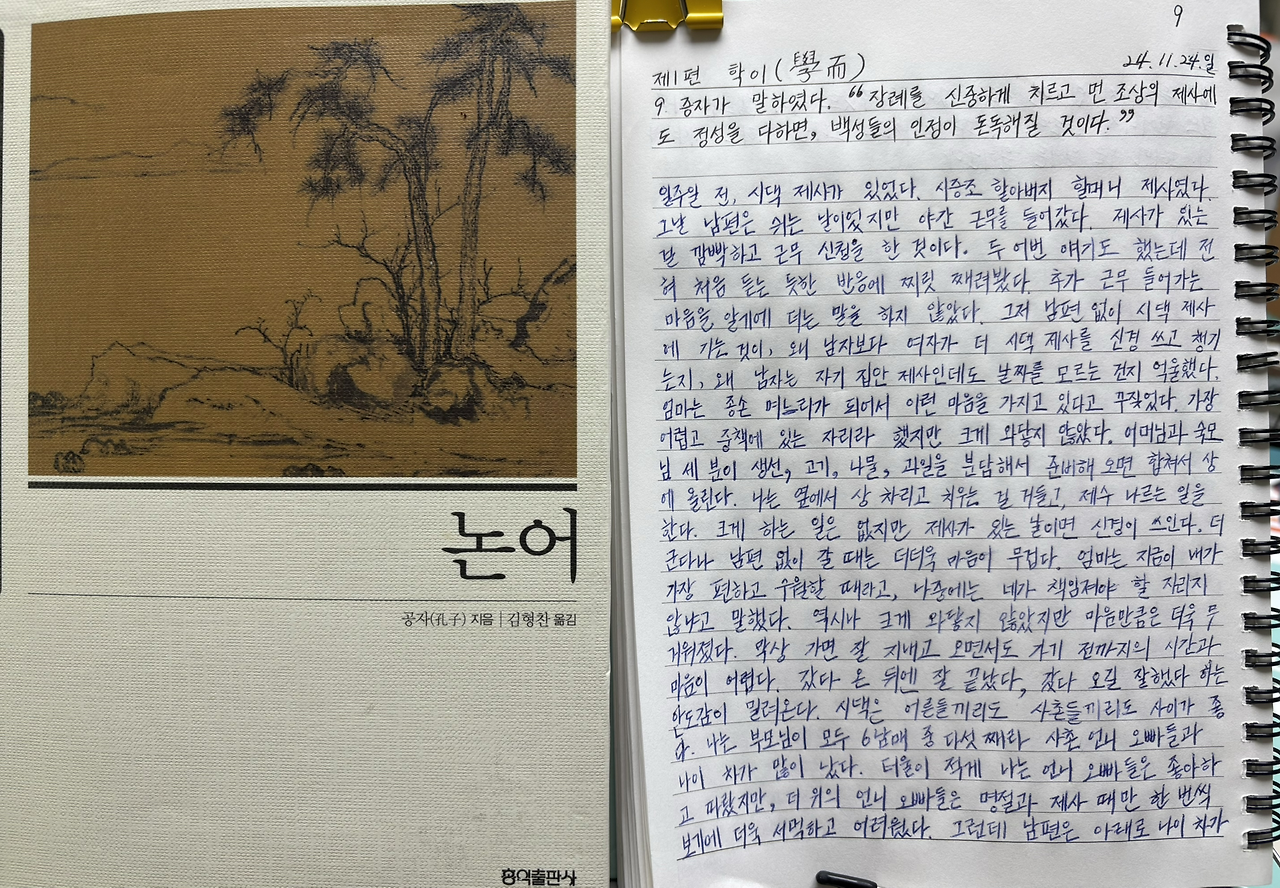 논어
공자(孔子) 지음 | 김형찬 옮김
홍익출판사
9
제1편 학이(學而) 24.11.24.일
9. 증자가 말하였다. "장례를 신중하게 치르고 먼 조상의 제사에
도 정성을 다하면, 백성들의 인정이 돈독해질 것이다."
일주일 전, 시댁 제사가 있었다. 시증조 할아버지 할머니 제사였다.
그날 남편은 쉬는 날이었지만 야간 근무를 들어갔다. 제사가 있는
걸 깜빡하고 근무 신청을 한 것이다. 두 어번 얘기도 했는데 전
혀 처음 듣는 듯한 반응에 찌릿 째려봤다. 추가 근무 들어가는
마음을 알기에 더는 말을 하지 않았다. 그저 남편 없이 시댁 제사
에 가는 것이, 왜 남자보다 여자가 더 시댁 제사를 신경 쓰고 챙기
는지, 왜 남자는 자기 집안 제사인데도 날짜를 모르는 건지 억울했다.
엄마는 종손 며느리가 되어서 이런 마음을 가지고 있다고 꾸짖었다. 가장
어렵고 중책에 있는 자리라 했지만 크게 와닿지 않았다. 어머님과 숙모
님 세 분이 생선, 고기, 나물, 과일을 분담해서 준비해 오면 합쳐서 상
에 올린다. 나는 옆에서 상 차리고 치우는 걸 거들고, 제수 나르는 일을
한다. 크게 하는 일은 없지만 제사가 있는 날이면 신경이 쓰인다. 더
군다나 남편 없이 갈 때는 더더욱 마음이 무겁다. 엄마는 지금이 내가
가장 편하고 수월할 때라고, 나중에는 네가 책임져야 할 자리지
않냐고 말했다. 역시나 크게 와닿지 않았지만 마음만큼은 더욱 무
거워졌다. 막상 가면 잘 지내고 오면서도 가기 전까지의 시간과
마음이 어렵다. 갔다 온 뒤엔 잘 끝났다, 갔다 오길 잘했다 하는
안도감이 밀려온다. 시댁은 어른들끼리도 사촌들끼리도 사이가 좋
다. 나는 부모님이 모두 6남매 중 다섯 째라 사촌 언니 오빠들과
나이 차가 많이 났다. 터울이 적게 나는 언니 오빠들은 좋아하
고 따랐지만, 더 위의 언니 오빠들은 명절과 제사 때만 한 번씩
보기에 더욱 서먹하고 어려웠다. 그런데 남편은 아래로 나이 차가